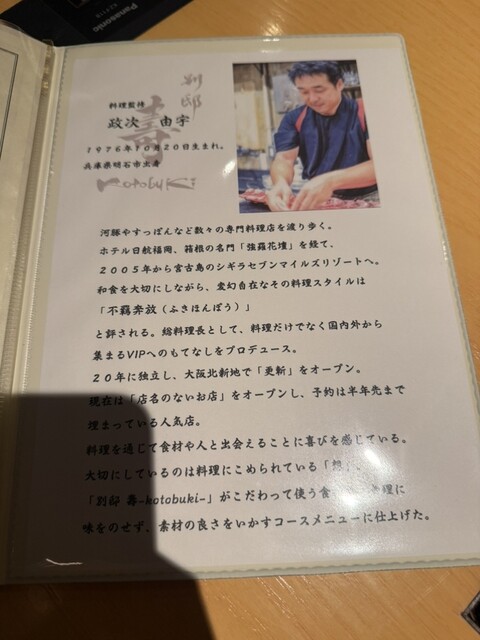 Panasonic
別邸
寿
料理監修
政次 由宇
1976年10月20日生まれ。
兵庫県明石市出身
KOTOBUKI
河豚やすっぽんなど数々の専門料理店を渡り歩く。
ホテル日航福岡、箱根の名門「強羅花壇」を経て、
2005年から宮古島のシギラセブンマイルズリゾートへ。
和食を大切にしながら、変幻自在なその料理スタイルは
「不羈奔放（ふきほんぽう）」
と評される。総料理長として、料理だけでなく国内外から
集まるVIPへのもてなしをプロデュース。
20年に独立し、大阪北新地で「更新」をオープン。
現在は「店名のないお店」をオープンし、予約は半年先まで
埋まっている人気店。
料理を通じて食材や人と出会えることに喜びを感じている。
大切にしているのは料理にこめられている「想
「別邸 壽-kotobuki-」がこだわって使う食 理に
味をのせず、素材の良さをいかすコースメニューに仕上げた。